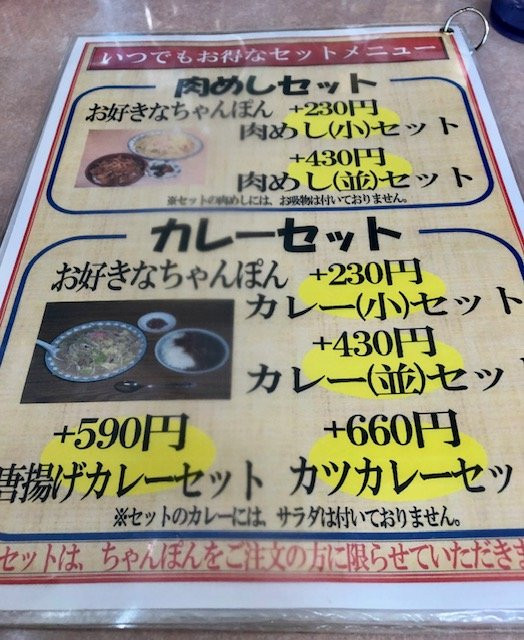 いつでもお得なセットメニュー
肉めしセット
お好きなちゃんぽん +230円
肉めし(小)セット
+430円
肉めし(並)セット
※セットの肉めしには、お吸物は付いておりません。
カレーセット
お好きなちゃんぽん +230円
カレー(小)セット
+430円
カレー(並)セット
+590円 +660円
唐揚げカレーセット カツカレーセッ
※セットのカレーには、サラダは付いておりません。
セットは、ちゃんぽんをご注文の方に限らせていただきま